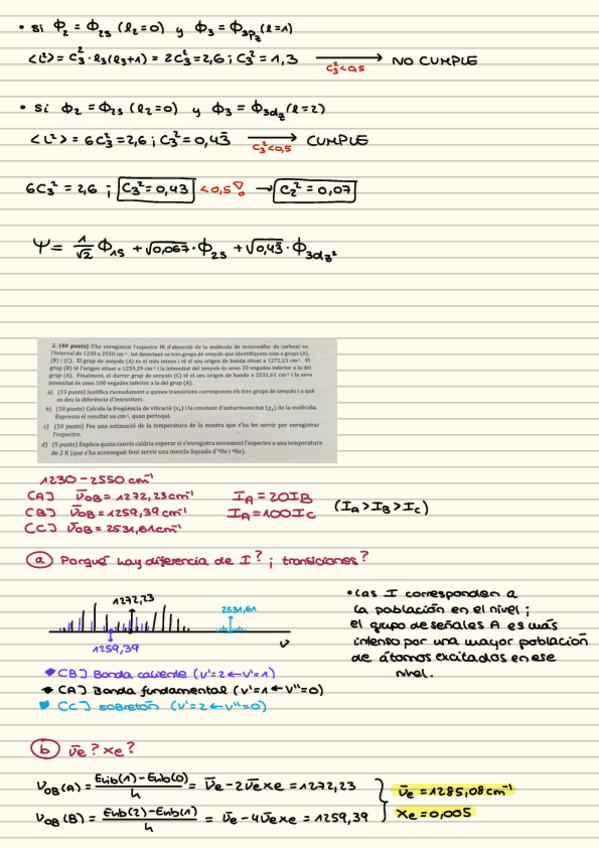 • si ϕ₂ = ϕ₂s (l₂=0) y ϕ₃ = ϕ₃pz (l=1)
<L²> = C₃² · l₃(l₃+1) = 2C₃² = 2,6 ; C₃² = 1,3 → NO CUMPLE
C₃² < 0,5
• si ϕ₂ = ϕ₂s (l₂=0) y ϕ₃ = ϕ₃dz (l=2)
<L²> = 6C₃² = 2,6 ; C₃² = 0,43 → CUMPLE
C₃² < 0,5
6C₃² = 2,6 ; C₃² = 0,43 < 0,5 → C₂² = 0,07
Ψ = 1/√2 ϕ₁s + √0,067 · ϕ₂s + √0,43 · ϕ₃dz²
2. (40 punts) S'ha enregistrat l'espectre IR d'absorció de la molècula de monosulfur de carboni en
l'interval de 1230 a 2550 cm⁻¹, tot detectant-se tres grups de senyals que identifiquem com a grups (A),
(B) i (C). El grup de senyals (A) és el més intens i té el seu origen de banda situat a 1272,23 cm⁻¹. El
grup (B) té l'origen situat a 1259,39 cm⁻¹ i la intensitat del senyals és unes 20 vegades inferior a la del
grup (A). Finalment, el darrer grup de senyals (C) té el seu origen de banda a 2531,61 cm⁻¹ i la seva
intensitat és unes 100 vegades inferior a la del grup (A).
a) (15 punts) Justifica raonadament a quines transicions corresponen els tres grups de senyals i a què
es deu la diferència d'intensitats.
b) (10 punts) Calcula la freqüència de vibració (νe) i la constant d'anharmonicitat (χe) de la molècula.
Expressa el resultat en cm⁻¹, quan pertoqui.
c) (10 punts) Fes una estimació de la temperatura de la mostra que s'ha fet servir per enregistrar
l'espectre.
d) (5 punts) Explica quins canvis caldria esperar si s'enregistra novament l'espectre a una temperatura
de 2 K (que s'ha aconseguit fent servir una mescla líquida d'³He i ⁴He).
1230 - 2550 cm⁻¹
(A) ν̄OB = 1272,23 cm⁻¹ IA = 20IB
(B) ν̄OB = 1259,39 cm⁻¹ IA = 100Ic (IA > IB > Ic)
(C) ν̄OB = 2531,61 cm⁻¹
a Porqué hay diferencia de I? ; transiciones?
1272,23
2531,61
1259,39
ν
• Las I corresponden a
la población en el nivel;
el grupo de señales A es más
intenso por una mayor población
de átomos excitados en ese
nivel.
(B) Banda caliente (v'=2 ← v''=1)
(A) Banda fundamental (v'=1 ← v''=0)
(C) sobretón (v'=2 ← v''=0)
b ν̄e? xe?
νOB (A) = Evib(1) - Evib(0) / h = ν̄e - 2ν̄exe = 1272,23
νOB (B) = Evib(2) - Evib(1) / h = ν̄e - 4ν̄exe = 1259,39
ν̄e = 1285,08 cm⁻¹
xe = 0,005